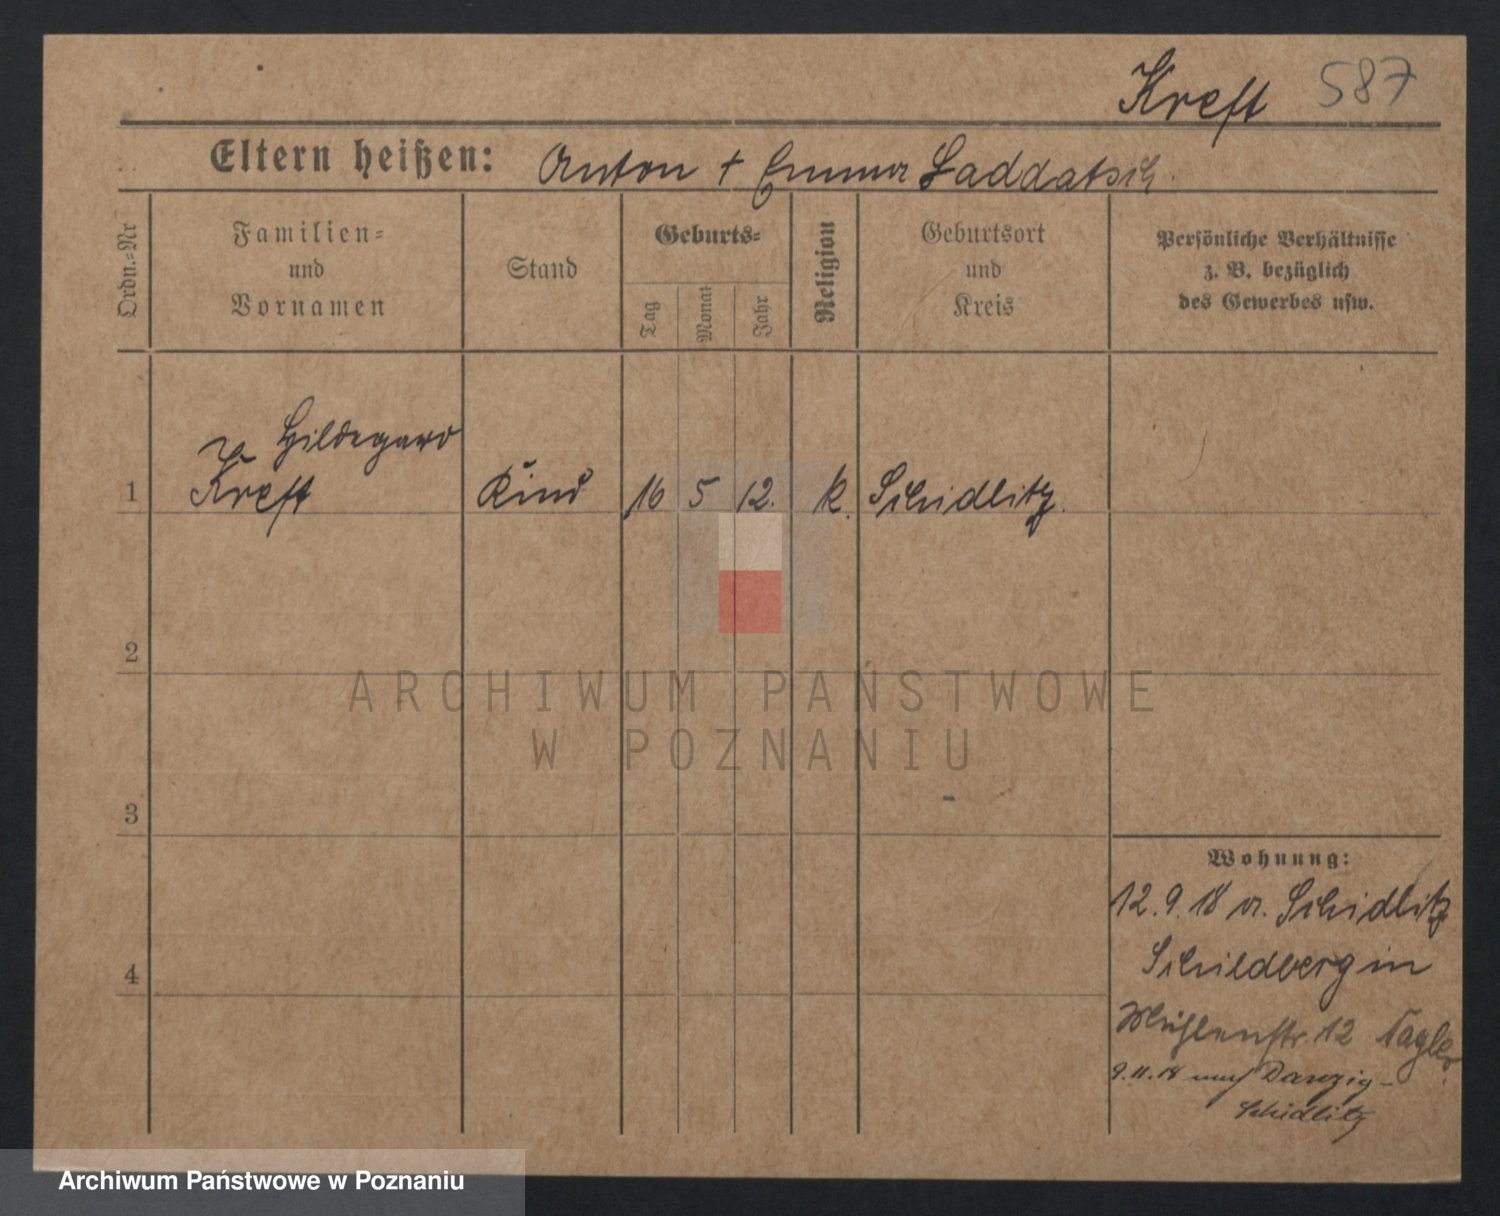 Kreft 587
Eltern heißen: Anton + Emma Laddatsch.
Ordn.-Nr
Familien=
und
Vornamen
Stand
Geburts=
Tag
Monat
Jahr
Religion
Geburtsort
und
Kreis
Persönliche Verhältnisse
z. B. bezüglich
des Gewerbes usw.
Hildegard
1 Kreft Kind 16 5 12. k. Schidlitz.
2
ARCHIWUM PAŃSTWOWE
W POZNANIU
3
Wohnung:
12.9.18 v. Schidlitz
4 Schildberg in
Mühlenstr. 12 Nagler
9.11.18 nach Danzig-
Schidlitz
Archiwum Państwowe w Poznaniu